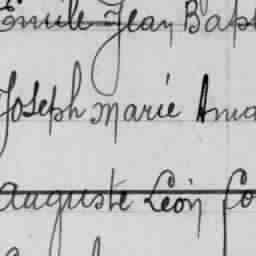 Emile Jean Bapt
Joseph Marie Ama
Auguste Léon